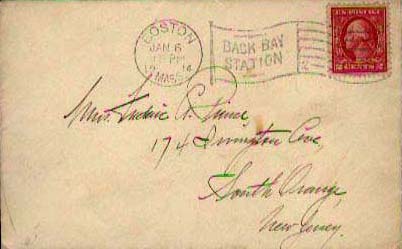 BOSTON
JAN 6
PM
14
MASS.
BACK BAY
STATION
U.S. POSTAGE
2 CENTS 2
Mrs.
174 Irvington Ave,
South Orange,
New Jersey.